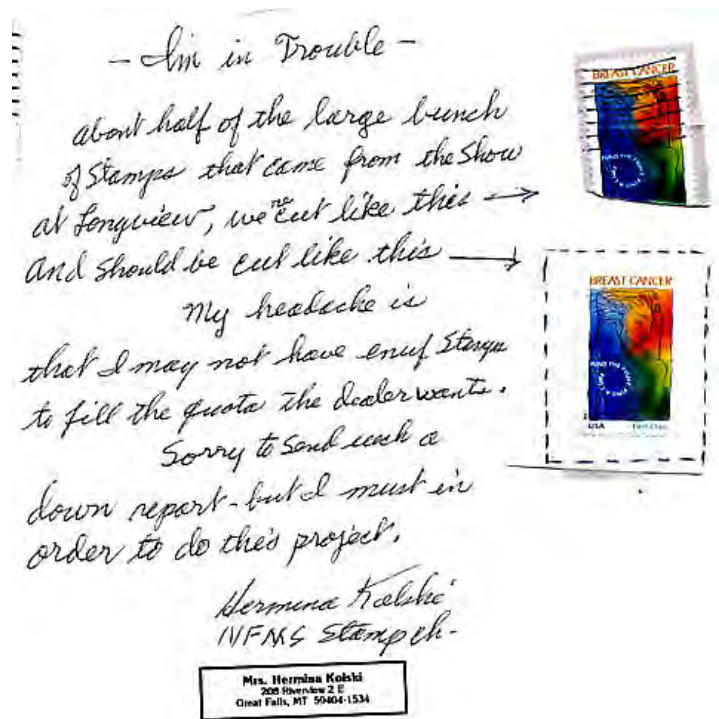 - I'm in Trouble -
about half of the large bunch
of Stamps that came from the Show
at Longview, were cut like this →
And should be cut like this →
My headache is
that I may not have enuf Stamps
to fill the quota the dealer wants.
Sorry to Send such a
down report - but I must in
order to do this project.
Hermina Kolski
NFMS Stamp ch-
Mrs. Hermina Kolski
208 Riverview 2 E
Great Falls, MT 59404-1534
BREAST CANCER
FUND THE FIGHT. FIND A CURE.
BREAST CANCER
FUND THE FIGHT. FIND A CURE.
USA First-Class